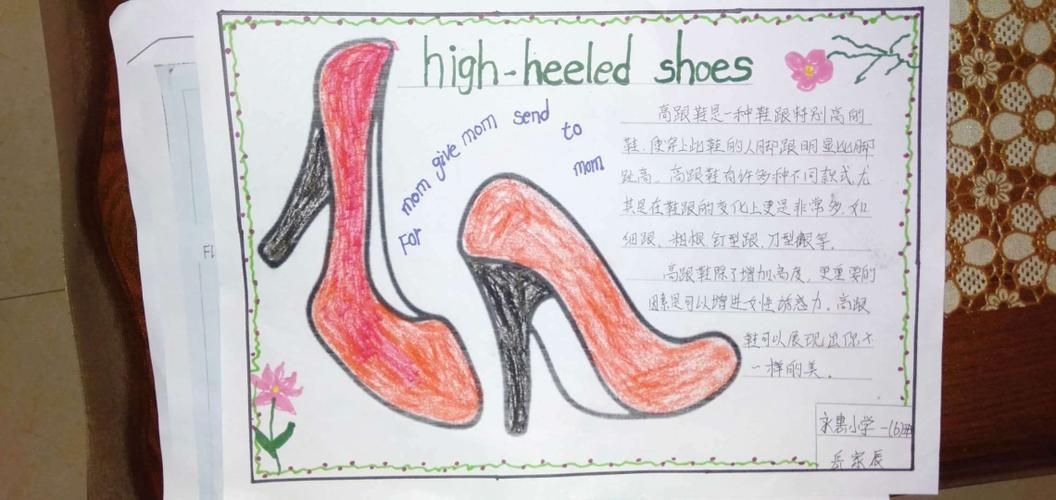 high-heeled shoes
For mom give mom send to mom
高跟鞋是一种鞋跟特别高的
鞋,使穿上此鞋的人脚跟明显比脚
趾高。高跟鞋有许多种不同款式尤
其是在鞋跟的变化上更是非常多,如
细跟、粗根、钉型跟、刀型跟等。
高跟鞋除了增加高度,更重要的
因素是可以增进女性诱惑力。高跟
鞋可以展现出你不
一样的美。
永惠小学一(6)班
岳家辰
FL